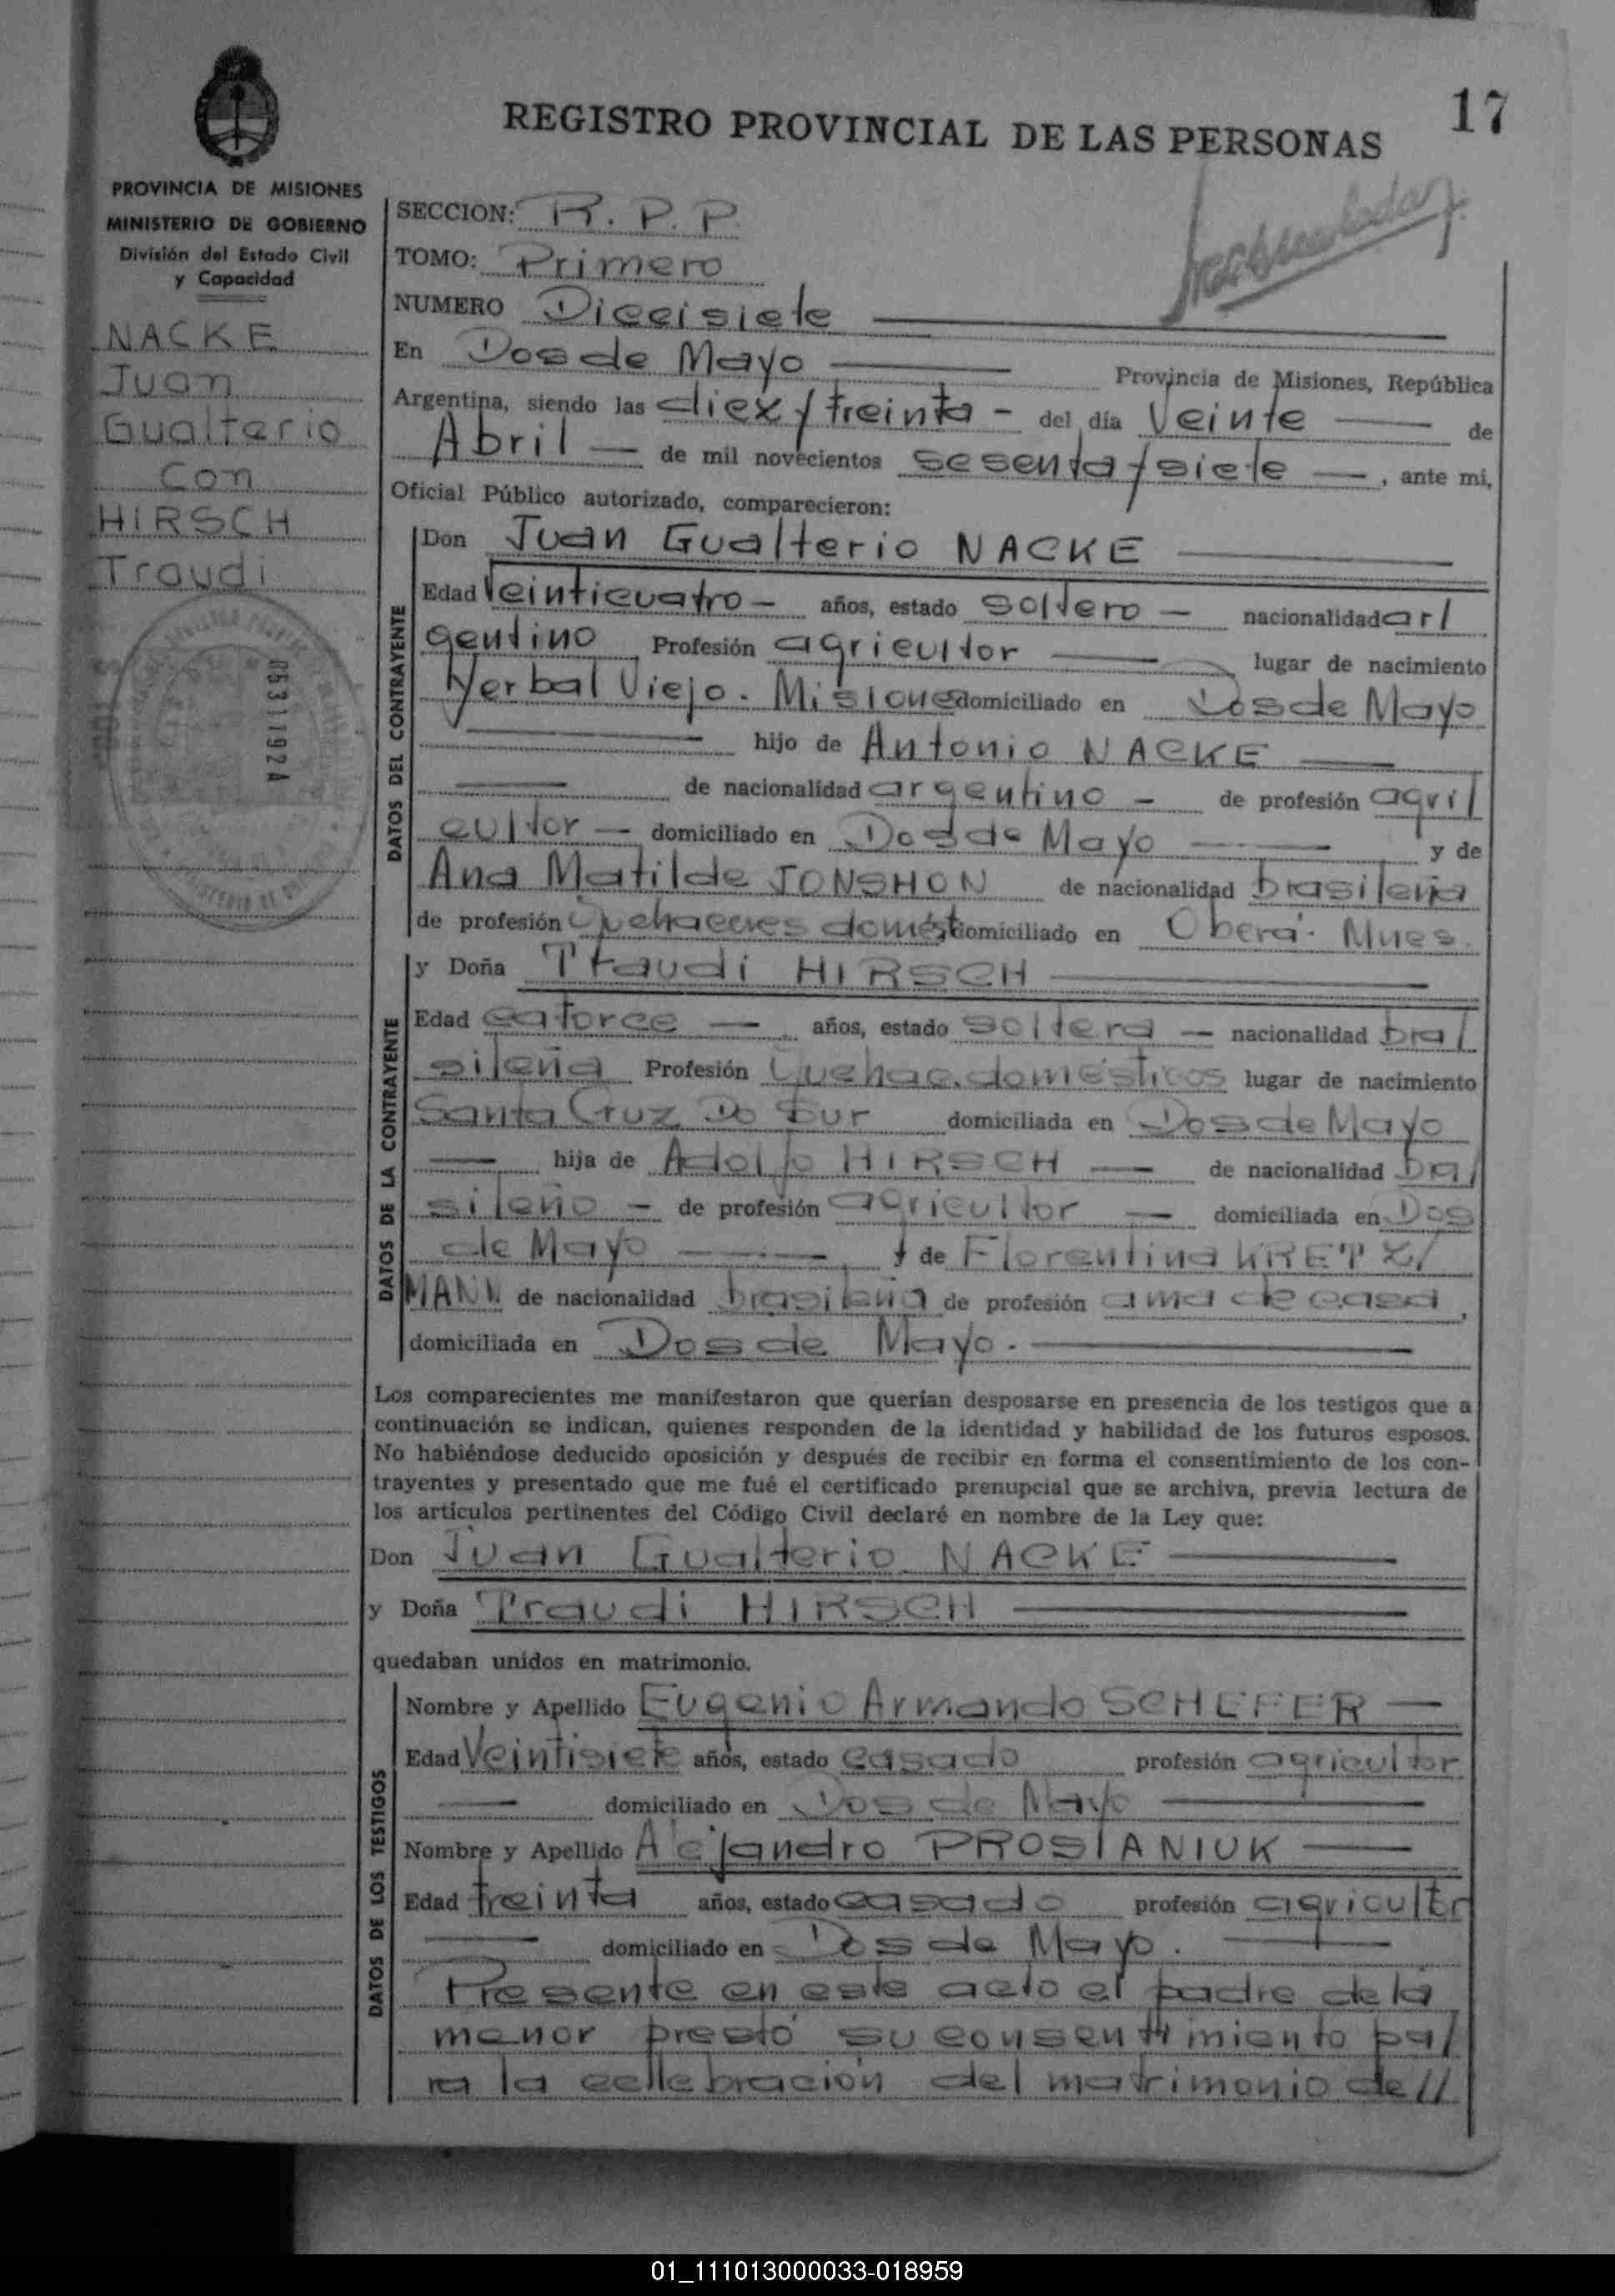 REGISTRO PROVINCIAL DE LAS PERSONAS
17
PROVINCIA DE MISIONES
MINISTERIO DE GOBIERNO
División del Estado Civil
y Capacidad
NACKE
Juan
Gualterio
Con
HIRSCH
Traudi
0531192A
SECCION: R. P. P.
TOMO: Primero
NUMERO Diecisiete
En Dos de Mayo Provincia de Misiones, República
Argentina, siendo las diez y treinta - del día Veinte de
Abril de mil novecientos sesenta y siete, ante mi,
Oficial Público autorizado, comparecieron:
DATOS DEL CONTRAYENTE
Don Juan Gualterio NACKE
Edad Veinticuatro - años, estado soltero - nacionalidad ar/
gentino Profesión agricultor lugar de nacimiento
Yerbal Viejo. Misiones domiciliado en Dos de Mayo
hijo de Antonio NACKE
de nacionalidad argentino - de profesión agri/
cultor - domiciliado en Dos de Mayo y de
Ana Matilde JONSHON de nacionalidad brasileña
de profesión Quehaceres domést domiciliado en Oberá. Mnes.
DATOS DE LA CONTRAYENTE
y Doña Traudi HIRSCH
Edad catorce - años, estado soltera - nacionalidad bra/
sileña Profesión Quehac. domésticos lugar de nacimiento
Santa Cruz Do Sur domiciliada en Dos de Mayo
hija de Adolfo HIRSCH - de nacionalidad bra/
sileño - de profesión agricultor - domiciliada en Dos
de Mayo y de Florentina KRETZ/
MANN de nacionalidad brasileña de profesión ama de casa,
domiciliada en Dos de Mayo.
Los comparecientes me manifestaron que querían desposarse en presencia de los testigos que a
continuación se indican, quienes responden de la identidad y habilidad de los futuros esposos.
No habiéndose deducido oposición y después de recibir en forma el consentimiento de los con-
trayentes y presentado que me fué el certificado prenupcial que se archiva, previa lectura de
los artículos pertinentes del Código Civil declaré en nombre de la Ley que:
Don Juan Gualterio NACKE
y Doña Traudi HIRSCH
quedaban unidos en matrimonio.
DATOS DE LOS TESTIGOS
Nombre y Apellido Eugenio Armando SCHEFER
Edad Veintisiete años, estado casado profesión agricultor
domiciliado en Dos de Mayo
Nombre y Apellido Alejandro PROSIANIUK
Edad treinta años, estado casado profesión agricultr
domiciliado en Dos de Mayo.
Presente en este acto el padre de la
menor prestó su consentimiento pa/
ra la cellebración del matrimonio de//
01_111013000033-018959